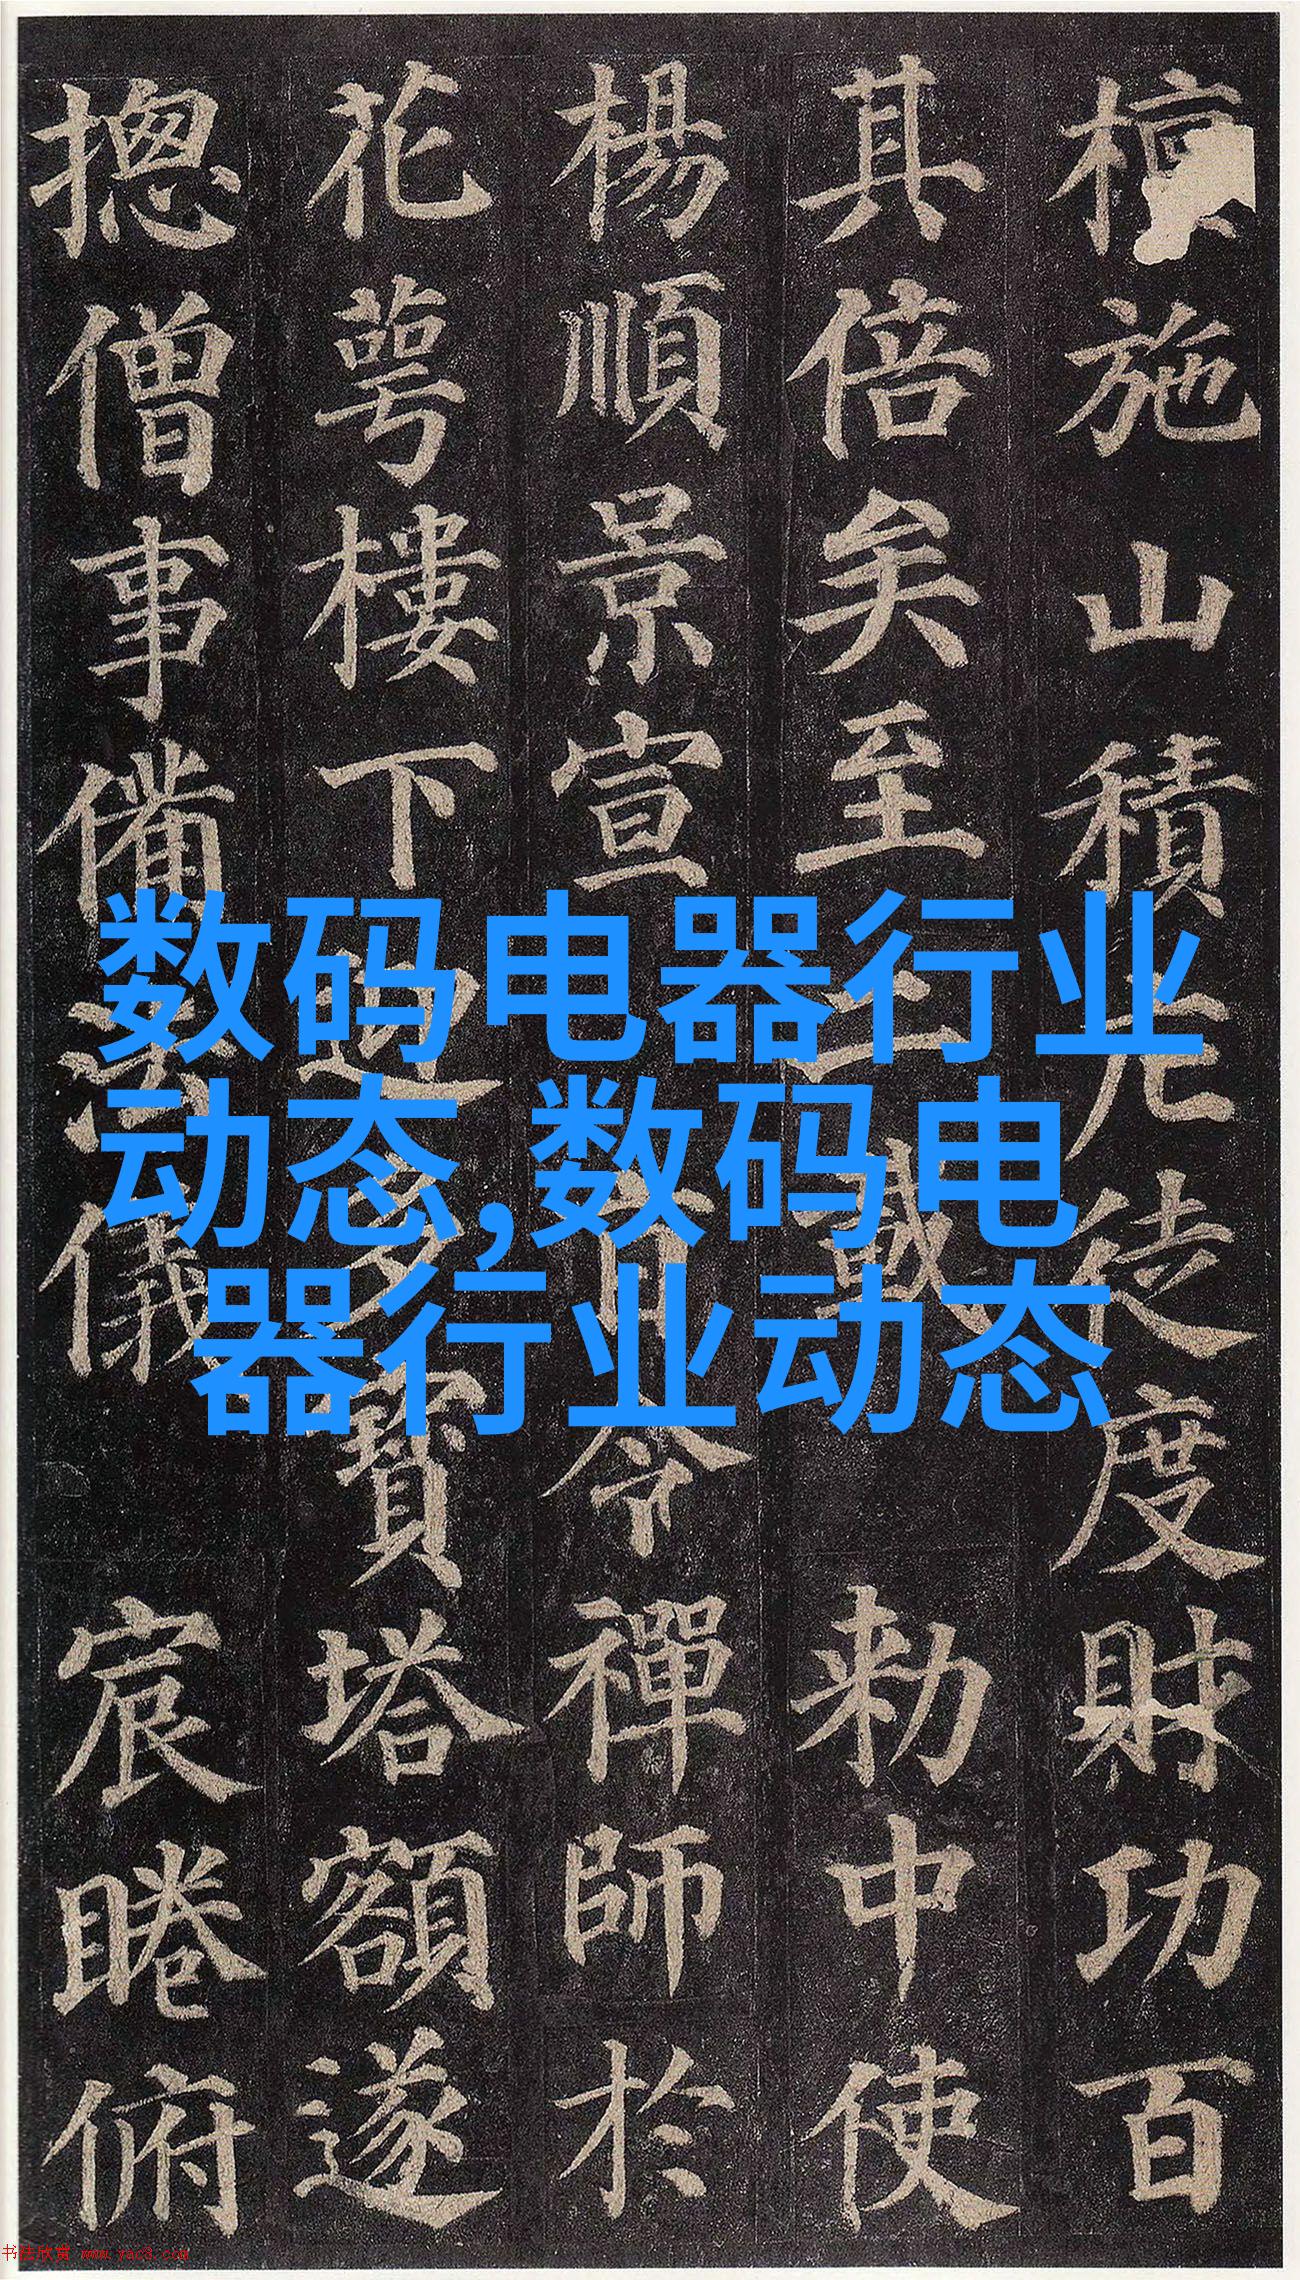 檀施山積庀徒度財功百
其倍矣至二載敕中使
楊順景宣旨令禪師於
花萼樓下迎多寶塔額遂
摠僧事備法儀宸睠俯
数码电器行业
动态,数码电
器行业动态
书法欣赏 www.yac3.com